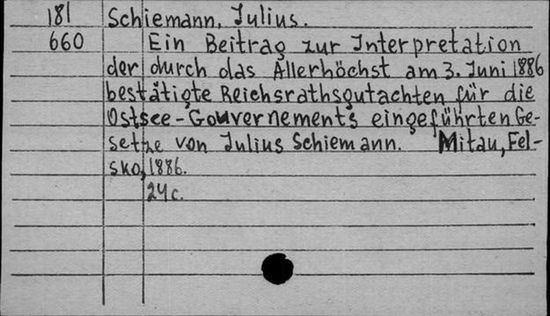 181 Schiemann, Julius.
660 Ein Beitrag zur Interpretation
der durch das Allerhöchst am 3. Juni 1886
bestätigte Reichsrathsgutachten für die
Ostsee-Gouvernements eingeführten Ge-
setze von Julius Schiemann. Mitau, Fel-
sko, 1886.
24 c.